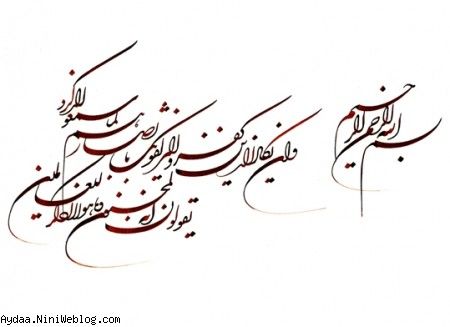 بسم الله الرحمن الرحيم
وان يكاد الذين كفروا ليزلقونك بابصارهم لما سمعوا الذكر
و يقولون انه لمجنون و ما هو الا ذكر للعالمين
Aydaa.NiniWeblog.com